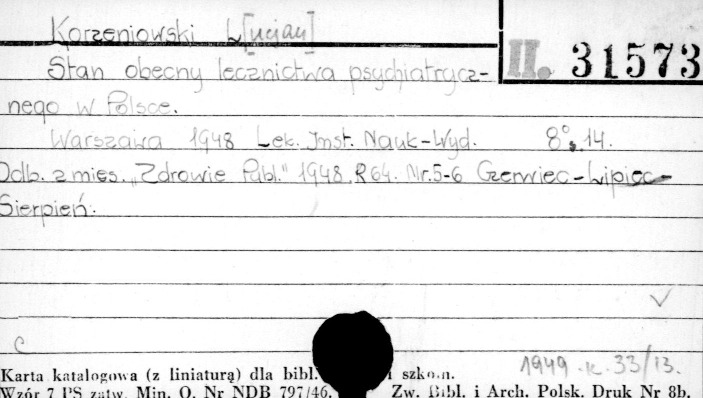 Korzeniowski L[ucjan]
II. 31573
Stan obecny lecznictwa psychiatrycz-
nego w Polsce.
Warszawa 1948 Lek. Inst. Nauk-Wyd. 8°, 14.
Odb. z mies. „Zdrowie Publ." 1948, R 64. Nr. 5-6 Czerwiec-Lipiec-
Sierpień.
C
1949.K.33/13.
Karta katalogowa (z liniaturą) dla bibl. i szkoln.
Wzór 7 PS zatw. Min. O. Nr NDB 797/46. Zw. Bibl. i Arch. Polsk. Druk Nr 8b.